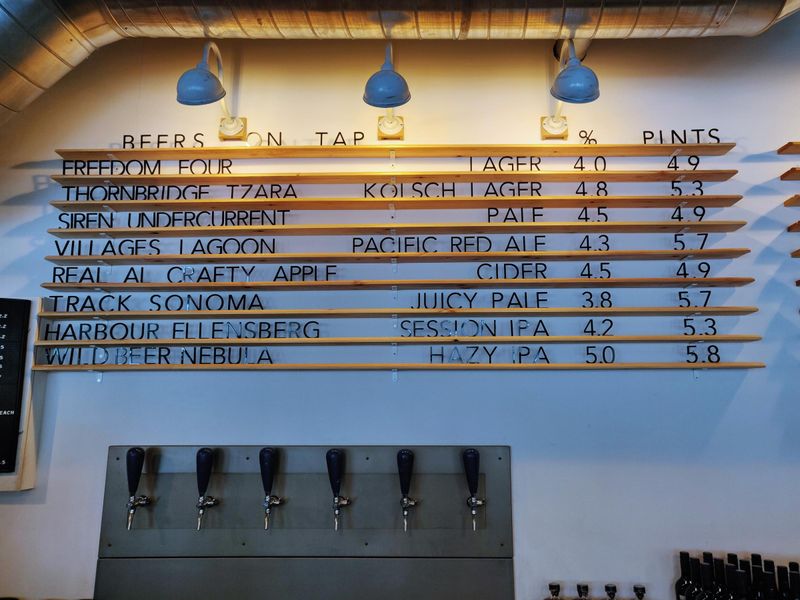 BEERS ON TAP % PINTS
FREEDOM FOUR LAGER 4.0 4.9
THORNBRIDGE TZARA KOLSCH LAGER 4.8 5.3
SIREN UNDERCURRENT PALE 4.5 4.9
VILLAGES LAGOON PACIFIC RED ALE 4.3 5.7
REAL AL CRAFTY APPLE CIDER 4.5 4.9
TRACK SONOMA JUICY PALE 3.8 5.7
HARBOUR ELLENSBERG SESSION IPA 4.2 5.3
WILD BEER NEBULA HAZY IPA 5.0 5.8
EACH